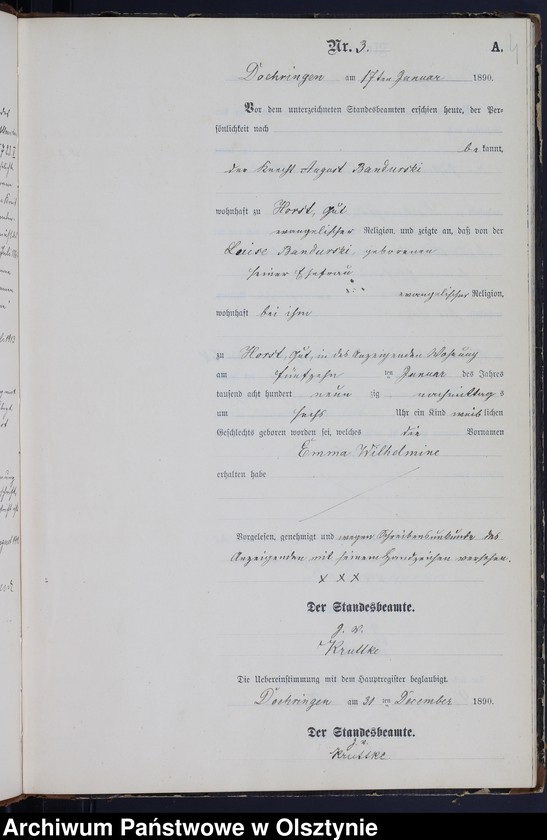 Nr. 3.
A.
Doehringen am 17ten Januar 1890.
Vor dem unterzeichneten Standesbeamten erschien heute, der Per-
sönlichkeit nach
be kannt,
der Knecht August Bandurski
wohnhaft zu Horst, Gut
evangelischer Religion, und zeigte an, daß von der
Luise Bandurski, geborenen
seiner Ehefrau
evangelischer Religion,
wohnhaft bei ihm
zu Horst, Gut, in des Anzeigenden Wohnung
am fünfzehn ten Januar des Jahres
tausend acht hundert neun zig nachmittags
um sechs Uhr ein Kind weib lichen
Geschlechts geboren worden sei, welches die Vornamen
Emma Wilhelmine
erhalten habe
Vorgelesen, genehmigt und wegen Schreibensunkunde des
Anzeigenden mit seinem Handzeichen versehen.
x x x
Der Standesbeamte.
J. V.
Kruttke
Die Uebereinstimmung mit dem Hauptregister beglaubigt.
Doehringen am 31 ten December 1890.
Der Standesbeamte.
J. V.
Kruttke
Archiwum Państwowe w Olsztynie